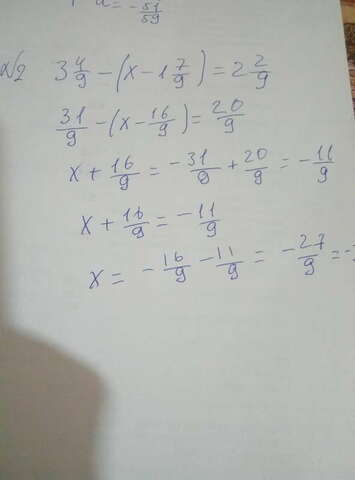 a = -51/59
№2 3 4/9 - (x - 1 7/9) = 2 2/9
31/9 - (x - 16/9) = 20/9
x + 16/9 = -31/9 + 20/9 = -11/9
x + 16/9 = -11/9
x = -16/9 - 11/9 = -27/9 = -